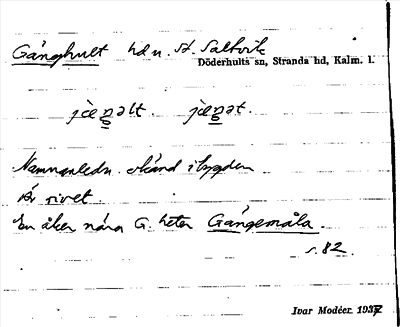 Gånghult hd u. St. Saltvik
Döderhults sn, Stranda hd, Kalm. l.
Namnanledn. okänd i bygden
Är rivet.
En åker nära G. heter Gångemåla.
s. 82.
Ivar Modéer. 1937